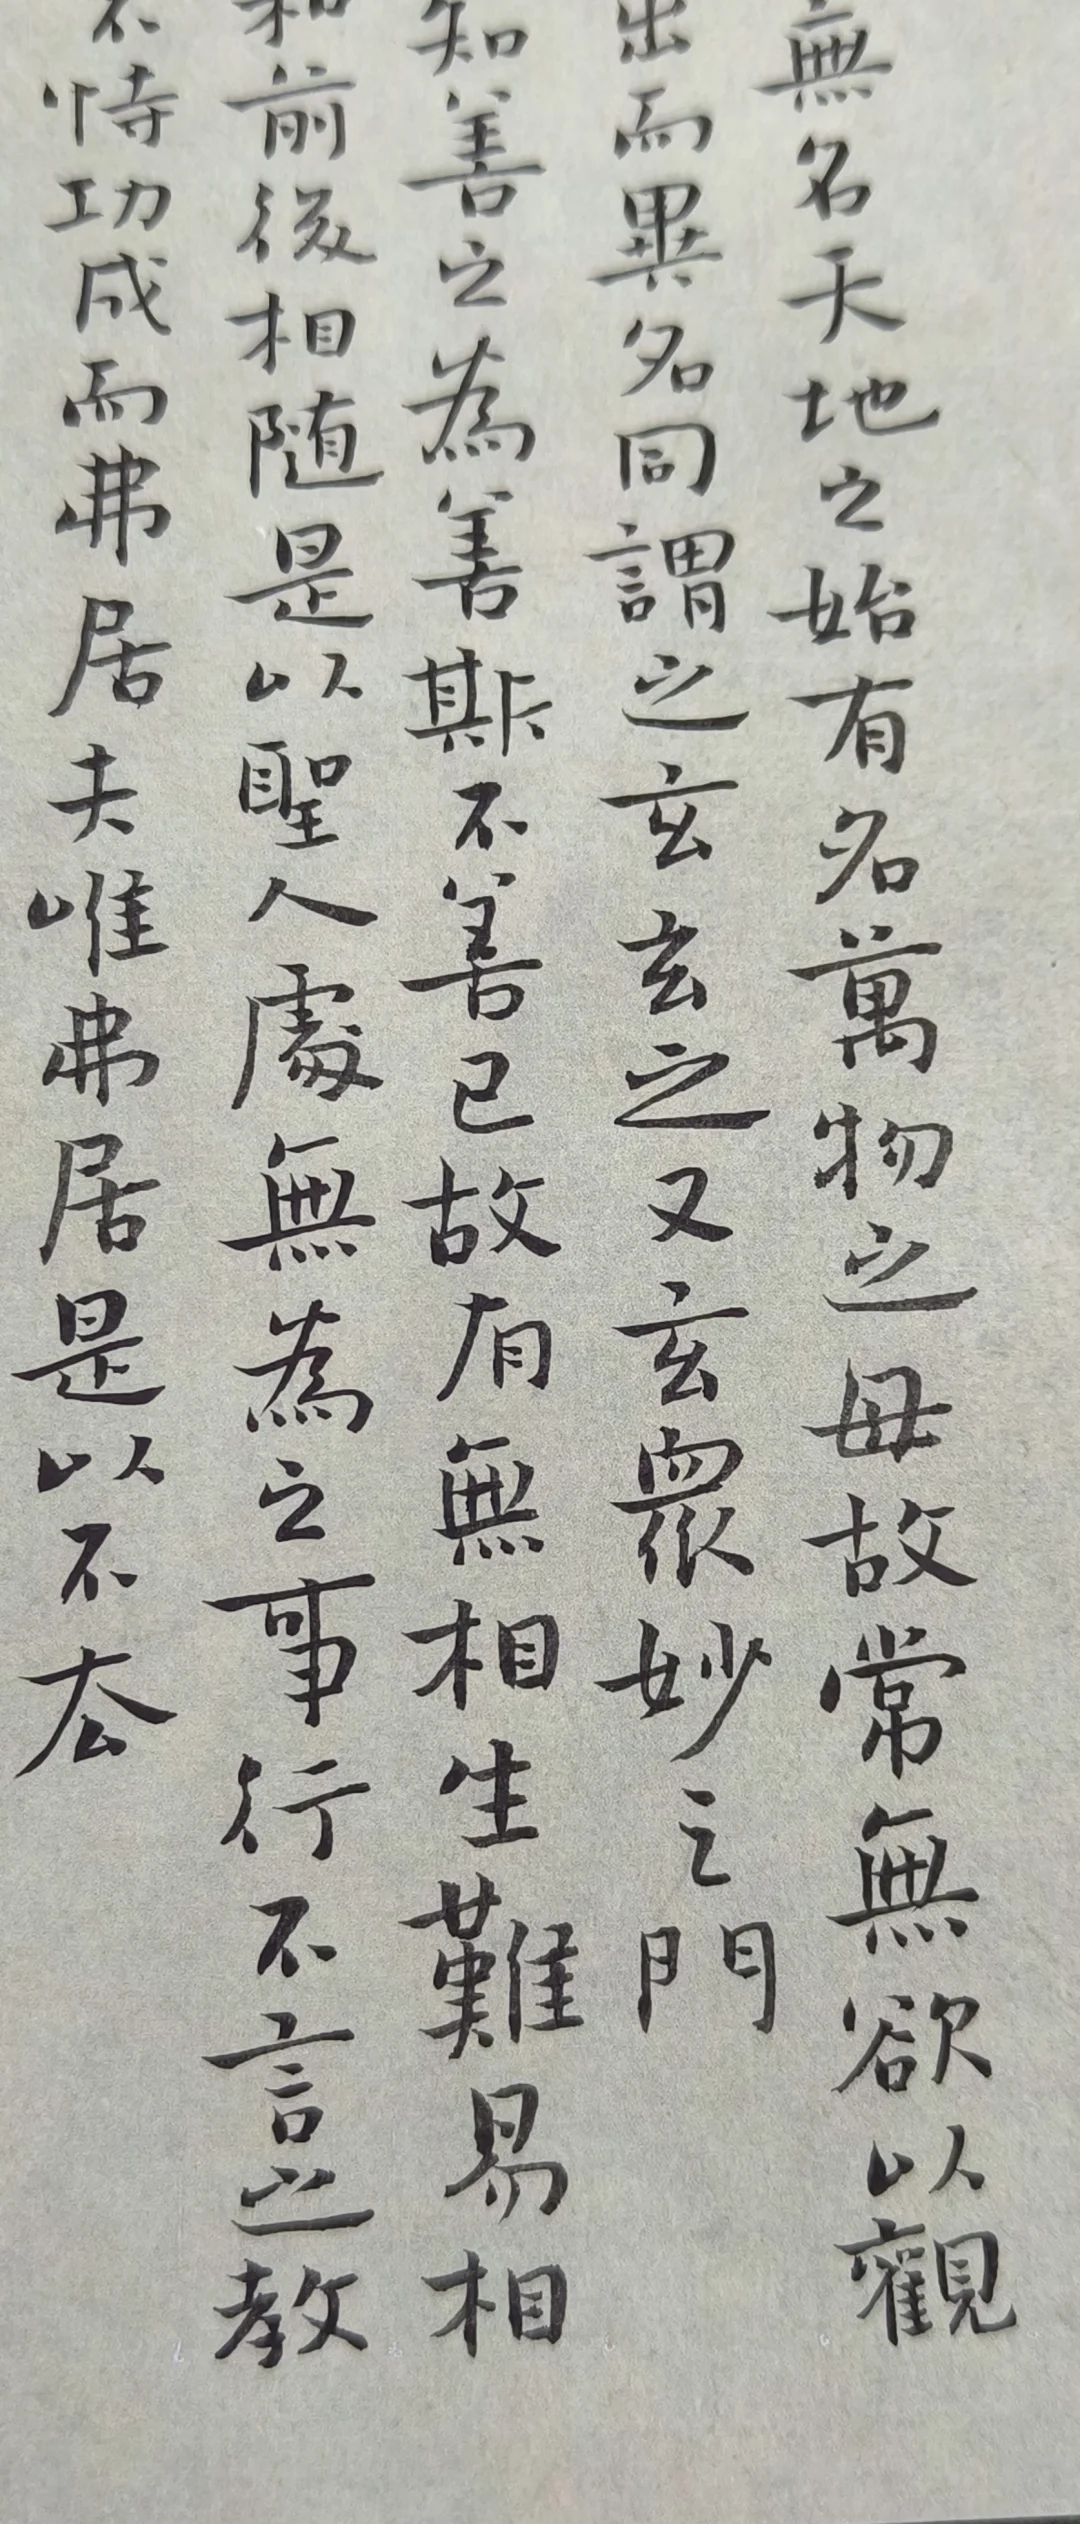 無名天地之始有名萬物之母故常無欲以觀
出而異名同謂之玄玄之又玄衆妙之門
知善之為善斯不善已故有無相生難易相
和前後相随是以聖人處無為之事行不言之教
不恃功成而弗居夫唯弗居是以不厺